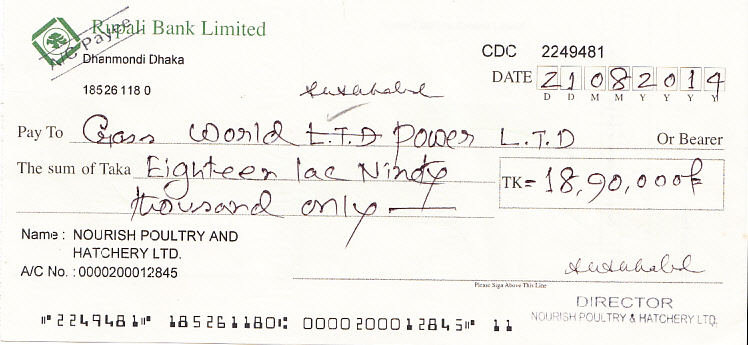 Rupali Bank Limited
A/C Payee
Dhanmondi Dhaka
18526 118 0
CDC 2249481
DATE 21082014
D D M M Y Y Y Y
Pay To Gass World L.T.D Power L.T.D Or Bearer
The sum of Taka Eighteen lac Nindy
TK= 18,90,000/=
thousand only
Name : NOURISH POULTRY AND
HATCHERY LTD.
A/C No. : 0000200012845
Please Sign Above This Line
DIRECTOR
NOURISH POULTRY & HATCHERY LTD.
⑈2249481⑈ 185261180⑆ 0000200012845⑈ 11